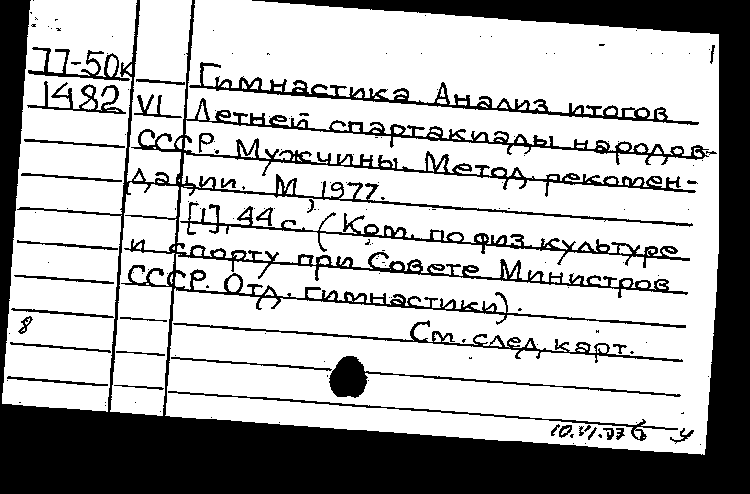 77-50к
1482
Гимнастика. Анализ итогов
VI Летней спартакиады народов
СССР. Мужчины. Метод. рекомен-
дации. М., 1977.
[1], 44 с. (Ком. по физ культуре
и спорту при Совете Министров
СССР. Отд. гимнастики).
См. след. карт.
8
10.VI.77